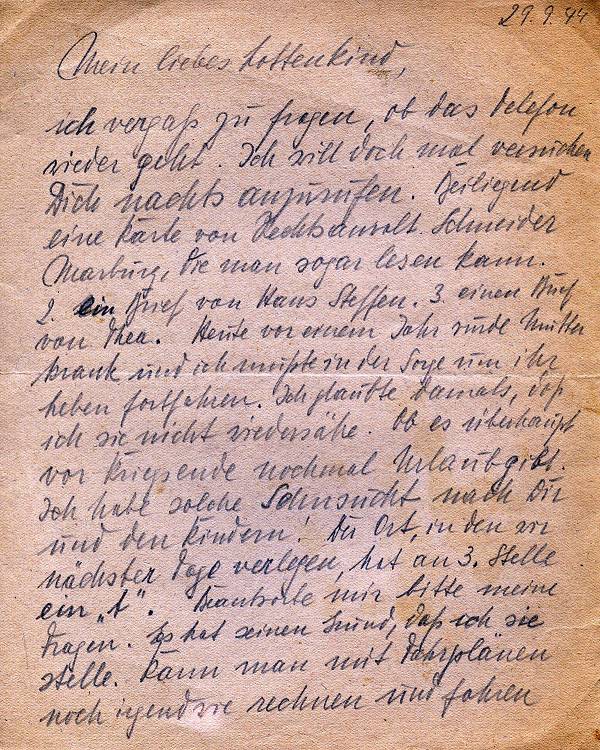 29.9.44
Mein liebes Lottenkind,
ich vergaß zu fragen, ob das Telefon
wieder geht. Ich will doch mal versuchen
Dich nachts anzurufen. Beiliegend
eine Karte von Rechtsanwalt Schneider
Marburg, die man sogar lesen kann.
2. ein Brief von Hans Steffen. 3. einen Brief
von Thea. Heute vor einem Jahr wurde Mutter
krank und ich mußte in der Sorge um ihr
Leben fortfahren. Ich glaubte damals, daß
ich sie nicht wiedersähe. Ob es überhaupt
vor Kriegsende nochmal Urlaub gibt.
Ich habe solche Sehnsucht nach Dir
und den Kindern! Der Ort, in den wir
nächster Tage verlegen, hat an 3. Stelle
ein „t". Beantworte mir bitte meine
Fragen. Es hat seinen Grund, daß ich sie
stelle. Kann man mit Fahrplänen
noch irgendwie rechnen und fahren